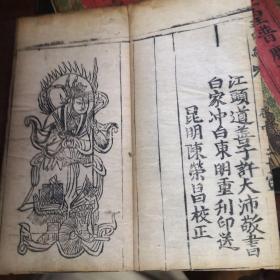 江頭道善子許大沛敬書
白家冲白東明重刊印送
昆明陳榮昌校正